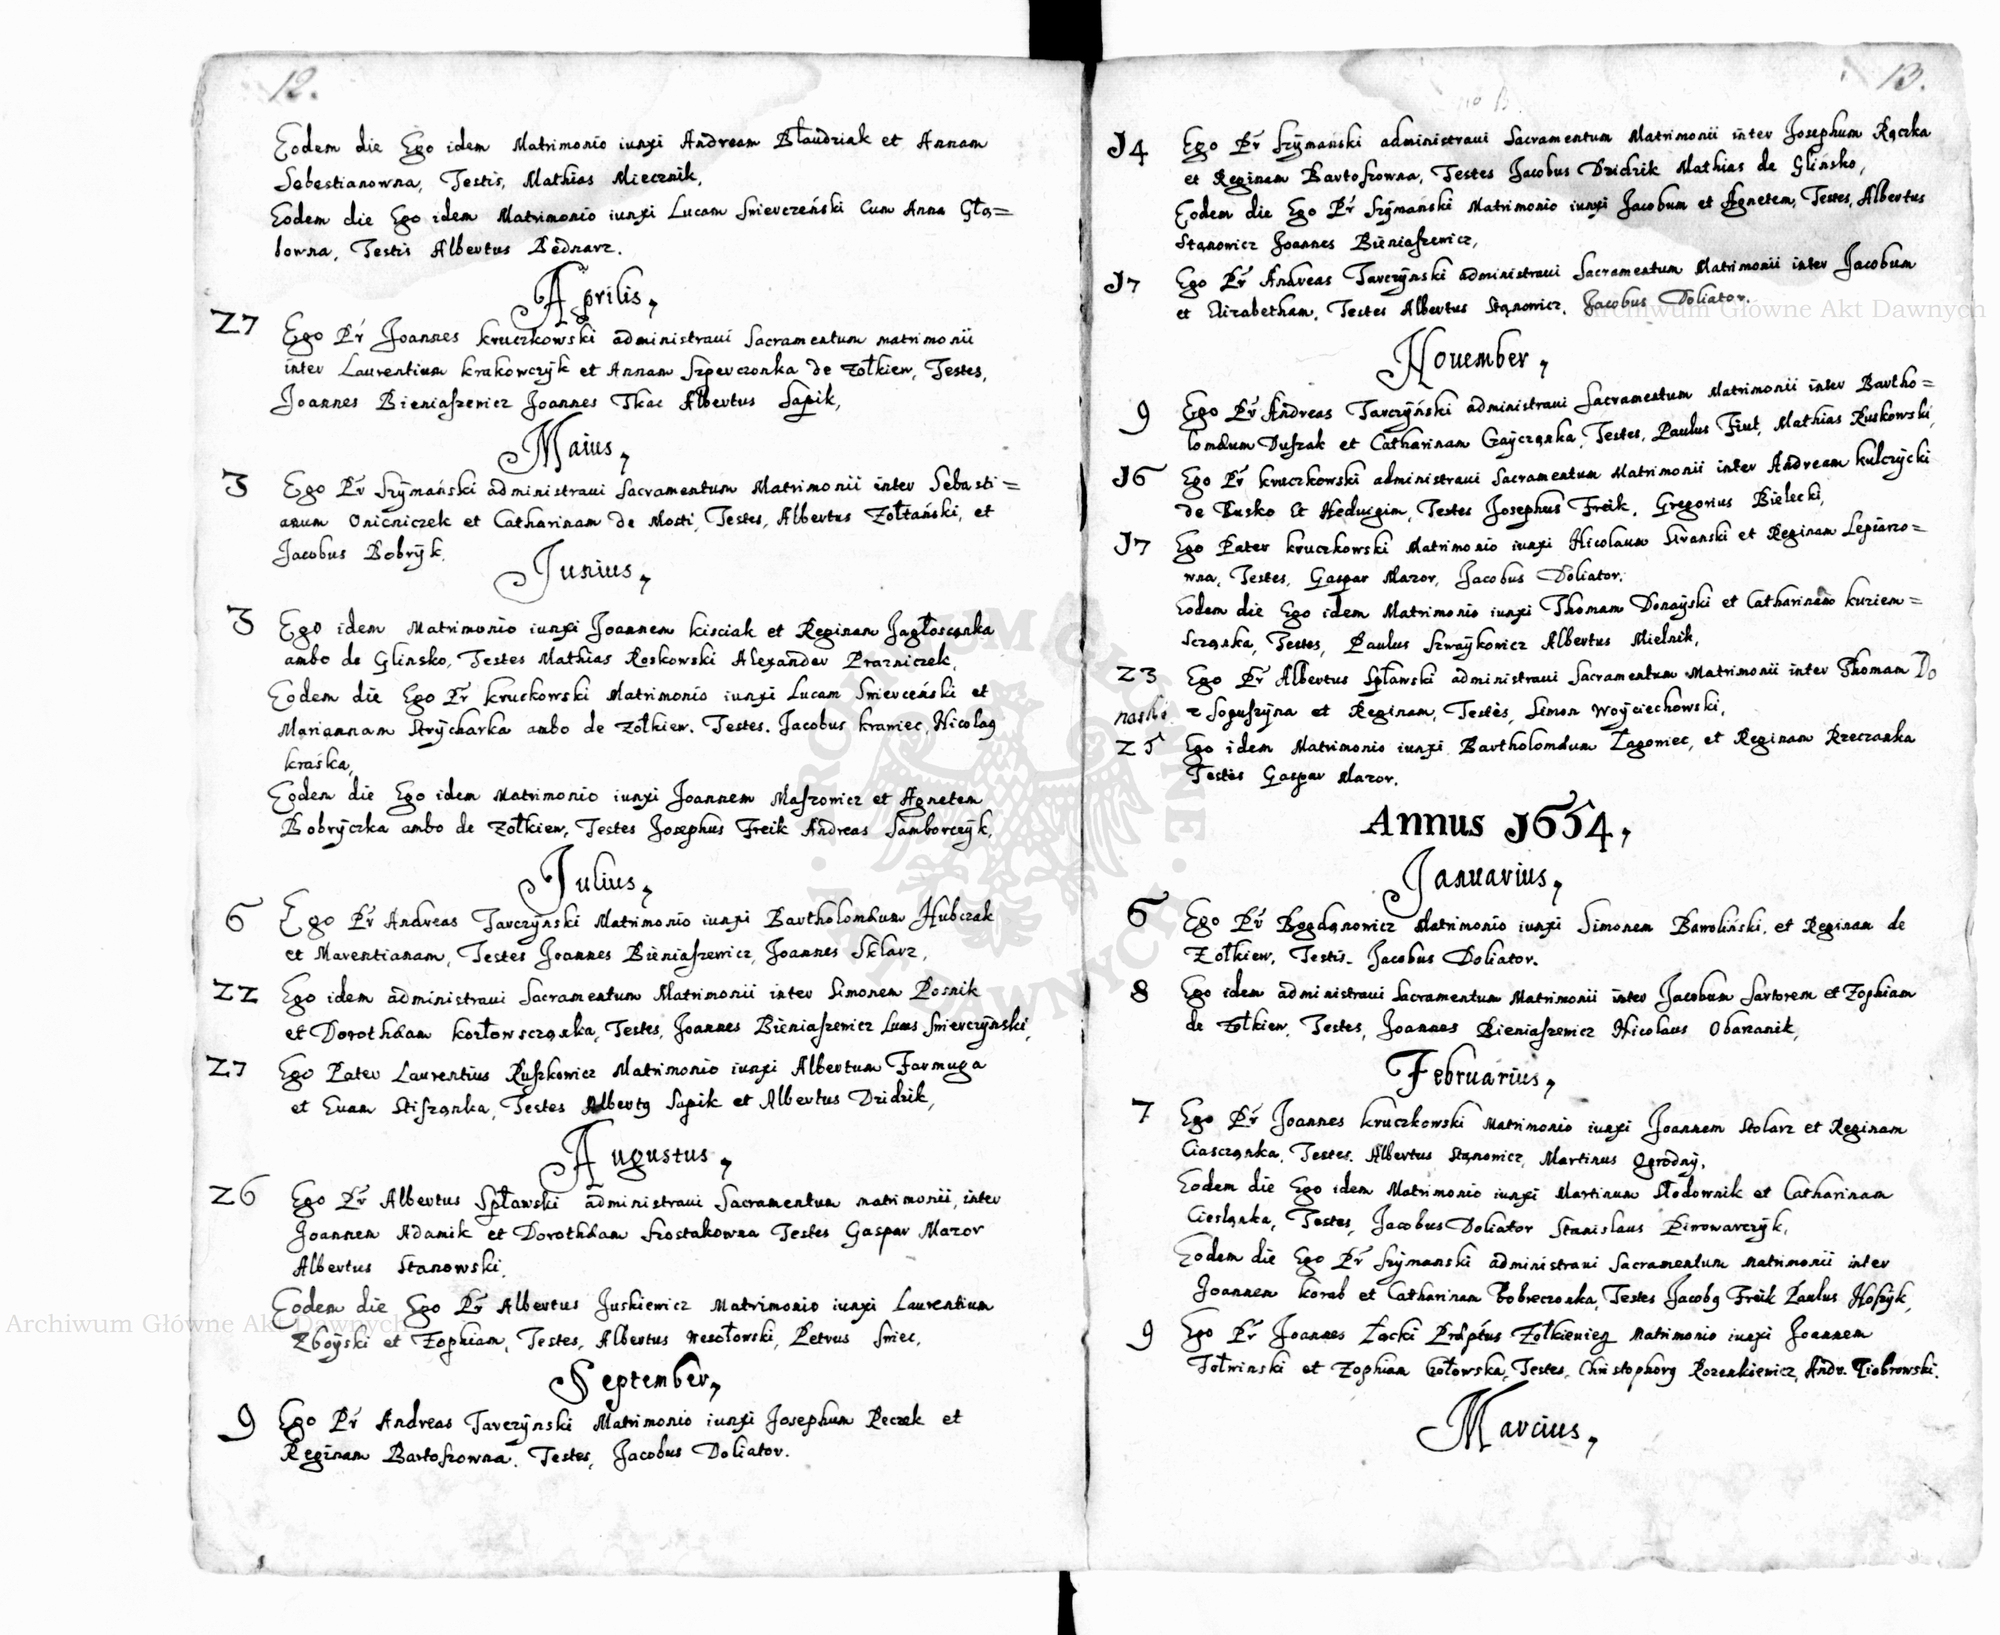 12.
Eodem die Ego idem Matrimonio iunxi Andream Błaudziak et Annam
Sebestianowna, Testis, Mathias Miecznik,
Eodem die Ego idem Matrimonio iunxi Lucam Swierczeński Cum Anna Gła=
bowna, Testis Albertus Bednarz.
Aprilis,
27 Ego Pr Joannes Kruczkowski administraui Sacramentum matrimonii
inter Laurentium Krakowczyk et Annam Szperczonka de Zołkiew, Testes,
Joannes Bieniaszewicz Joannes Tkac Albertus Sapik,
Maius,
3 Ego Pr Szÿmański administraui Sacramentum Matrimonii inter Sebasti=
anum Onicniczek et Catharinam de Mosti, Testes, Albertus Zołtański, et
Jacobus Bobrÿk.
Junius,
3 Ego idem Matrimonio iunxi Joannem Kisciak et Reginam Jagłoscąnka
ambo de Glinsko, Testes Mathias Roskowski Alexander Prazniczek,
Eodem die Ego Pr Kruckowski Matrimonio iunxi Lucam Swierceński et
Mariannam Strÿcharka ambo de Zołkiew. Testes. Jacobus Krawiec, Nicolaq
Kraśka,
Eodem die Ego idem Matrimonio iunxi Joannem Maszowicz et Agnetem
Bobrÿczka ambo de Zołkiew, Testes Josephus Freik Andreas Samborczÿk,
Julius,
6 Ego Pr Andreas Tarczÿnski Matrimonio iunxi Bartholomæum Hubczak
et Marentianam, Testes Joannes Bieniaszewicz, Joannes Sklarz,
22 Ego idem administraui Sacramentum Matrimonii inter Simonem Posnik
et Dorothæam Kozłowscząnka, Testes, Joannes Bieniaszewicz Lucas Swierczÿnski,
27 Ego Pater Laurentius Ruszkowicz Matrimonio iunxi Albertum Farmuga
et Euam Stisząnka, Testes Albertq Sapik et Albertus Dzidzik,
Augustus,
26 Ego Pr Albertus Spławski administraui Sacramentum matrimonii, inter
Joannem Adamik et Dorothæam Szostakowna Testes Gaspar Mazor
Albertus Stanowski,
Eodem die Ego Pr Albertus Juskiewicz Matrimonio iunxi Laurentium
Zboÿski et Zophiam, Testes, Albertus Wesołowski, Petrus Swiec,
September,
9 Ego Pr Andreas Tarczÿnski Matrimonio iunxi Josephum Reczek et
Reginam Bartoszowna. Testes, Jacobus Doliator.
13.
14 Ego Pr Szÿmański administraui Sacramentum Matrimonii inter Josephum Rączka
et Reginam Bartoszowna, Testes Jacobus Dzidzik Mathias de Glińsko,
Eodem die Ego Pr Szÿmański Matrimonio iunxi Jacobum et Agnetem, Testes, Albertus
Stąnowicz Joannes Bieniaszewicz,
17 Ego Pr Andreas Tarczÿnski administraui Sacramentum Matrimonii inter Jacobum
et Elizabetham, Testes Albertus Stąnowicz, Jacobus Doliator.
Nouember,
9 Ego Pr Andreas Tarczÿński administraui Sacramentum Matrimonii inter Bartho=
lomæum Duszak et Catharinam Gaÿcząnka, Testes, Paulus Fiut, Mathias Ruskowski,
16 Ego Pr Kruczkowski administraui Sacramentum Matrimonii inter Andream Kulczÿcki
de Busko Et Heduigim, Testes Josephus Freik, Gregorius Bielecki,
17 Ego Pater Kruczkowski Matrimonio iunxi Nicolaum Siranski et Reginam Lepiarzo=
wna, Testes, Gaspar Mazor, Jacobus Doliator.
Eodem die Ego idem Matrimonio iunxi Thomam Donaÿski et Catharinam Kuziem=
Scząnka, Testes, Paulus Szwaÿkowicz Albertus Mielnik,
23 Ego Pr Albertus Spławski administraui Sacramentum Matrimonii inter Thomam Do
naski z Soguszÿna et Reginam, Testes, Simon Woÿciechowski,
25 Ego idem Matrimonio iunxi Bartholomæum Łagowiec, et Reginam Rzeczanka
Testes Gaspar Mazor.
Annus 1654,
Januarius,
6 Ego Pr Bogdąnowicz Matrimonio iunxi Simonem Bawoliński, et Reginam de
Zołkiew, Testis. Jacobus Doliator.
8 Ego idem administraui Sacramentum Matrimonii inter Jacobum Sartorem et Zophiam
de Zołkiew, Testes, Joannes Bieniaszewicz Nicolaus Obarzanik,
Februarius,
7 Ego Pr Joannes Kruczkowski Matrimonio iunxi Joannem Stolarz et Reginam
Ciascząnka, Testes. Albertus Stąnowicz, Martinus Ogrodnÿ,
Eodem die Ego idem Matrimonio iunxi Martinum Słodownik et Catharinam
Ciesląnka, Testes, Jacobus Doliator Stanislaus Piwowarczÿk,
Eodem die Ego Pr Szÿmanski administraui Sacramentum Matrimonii inter
Joannem Korab et Catharinam Bobreczonka, Testes Jacobq Freik Paulus Hoszÿk,
9 Ego Pr Joannes Łącki Præptus Zołkieuien Matrimonio iunxi Joannem
Tołwinski et Zophiam Gołowska, Testes, Christophorq Rozenkiewicz, Andr. Ziobrowski.
Marcius,
Archiwum Główne Akt Dawnych
Archiwum Główne Akt Dawnych
ARCHIWUM GŁÓWNE AKT DAWNYCH